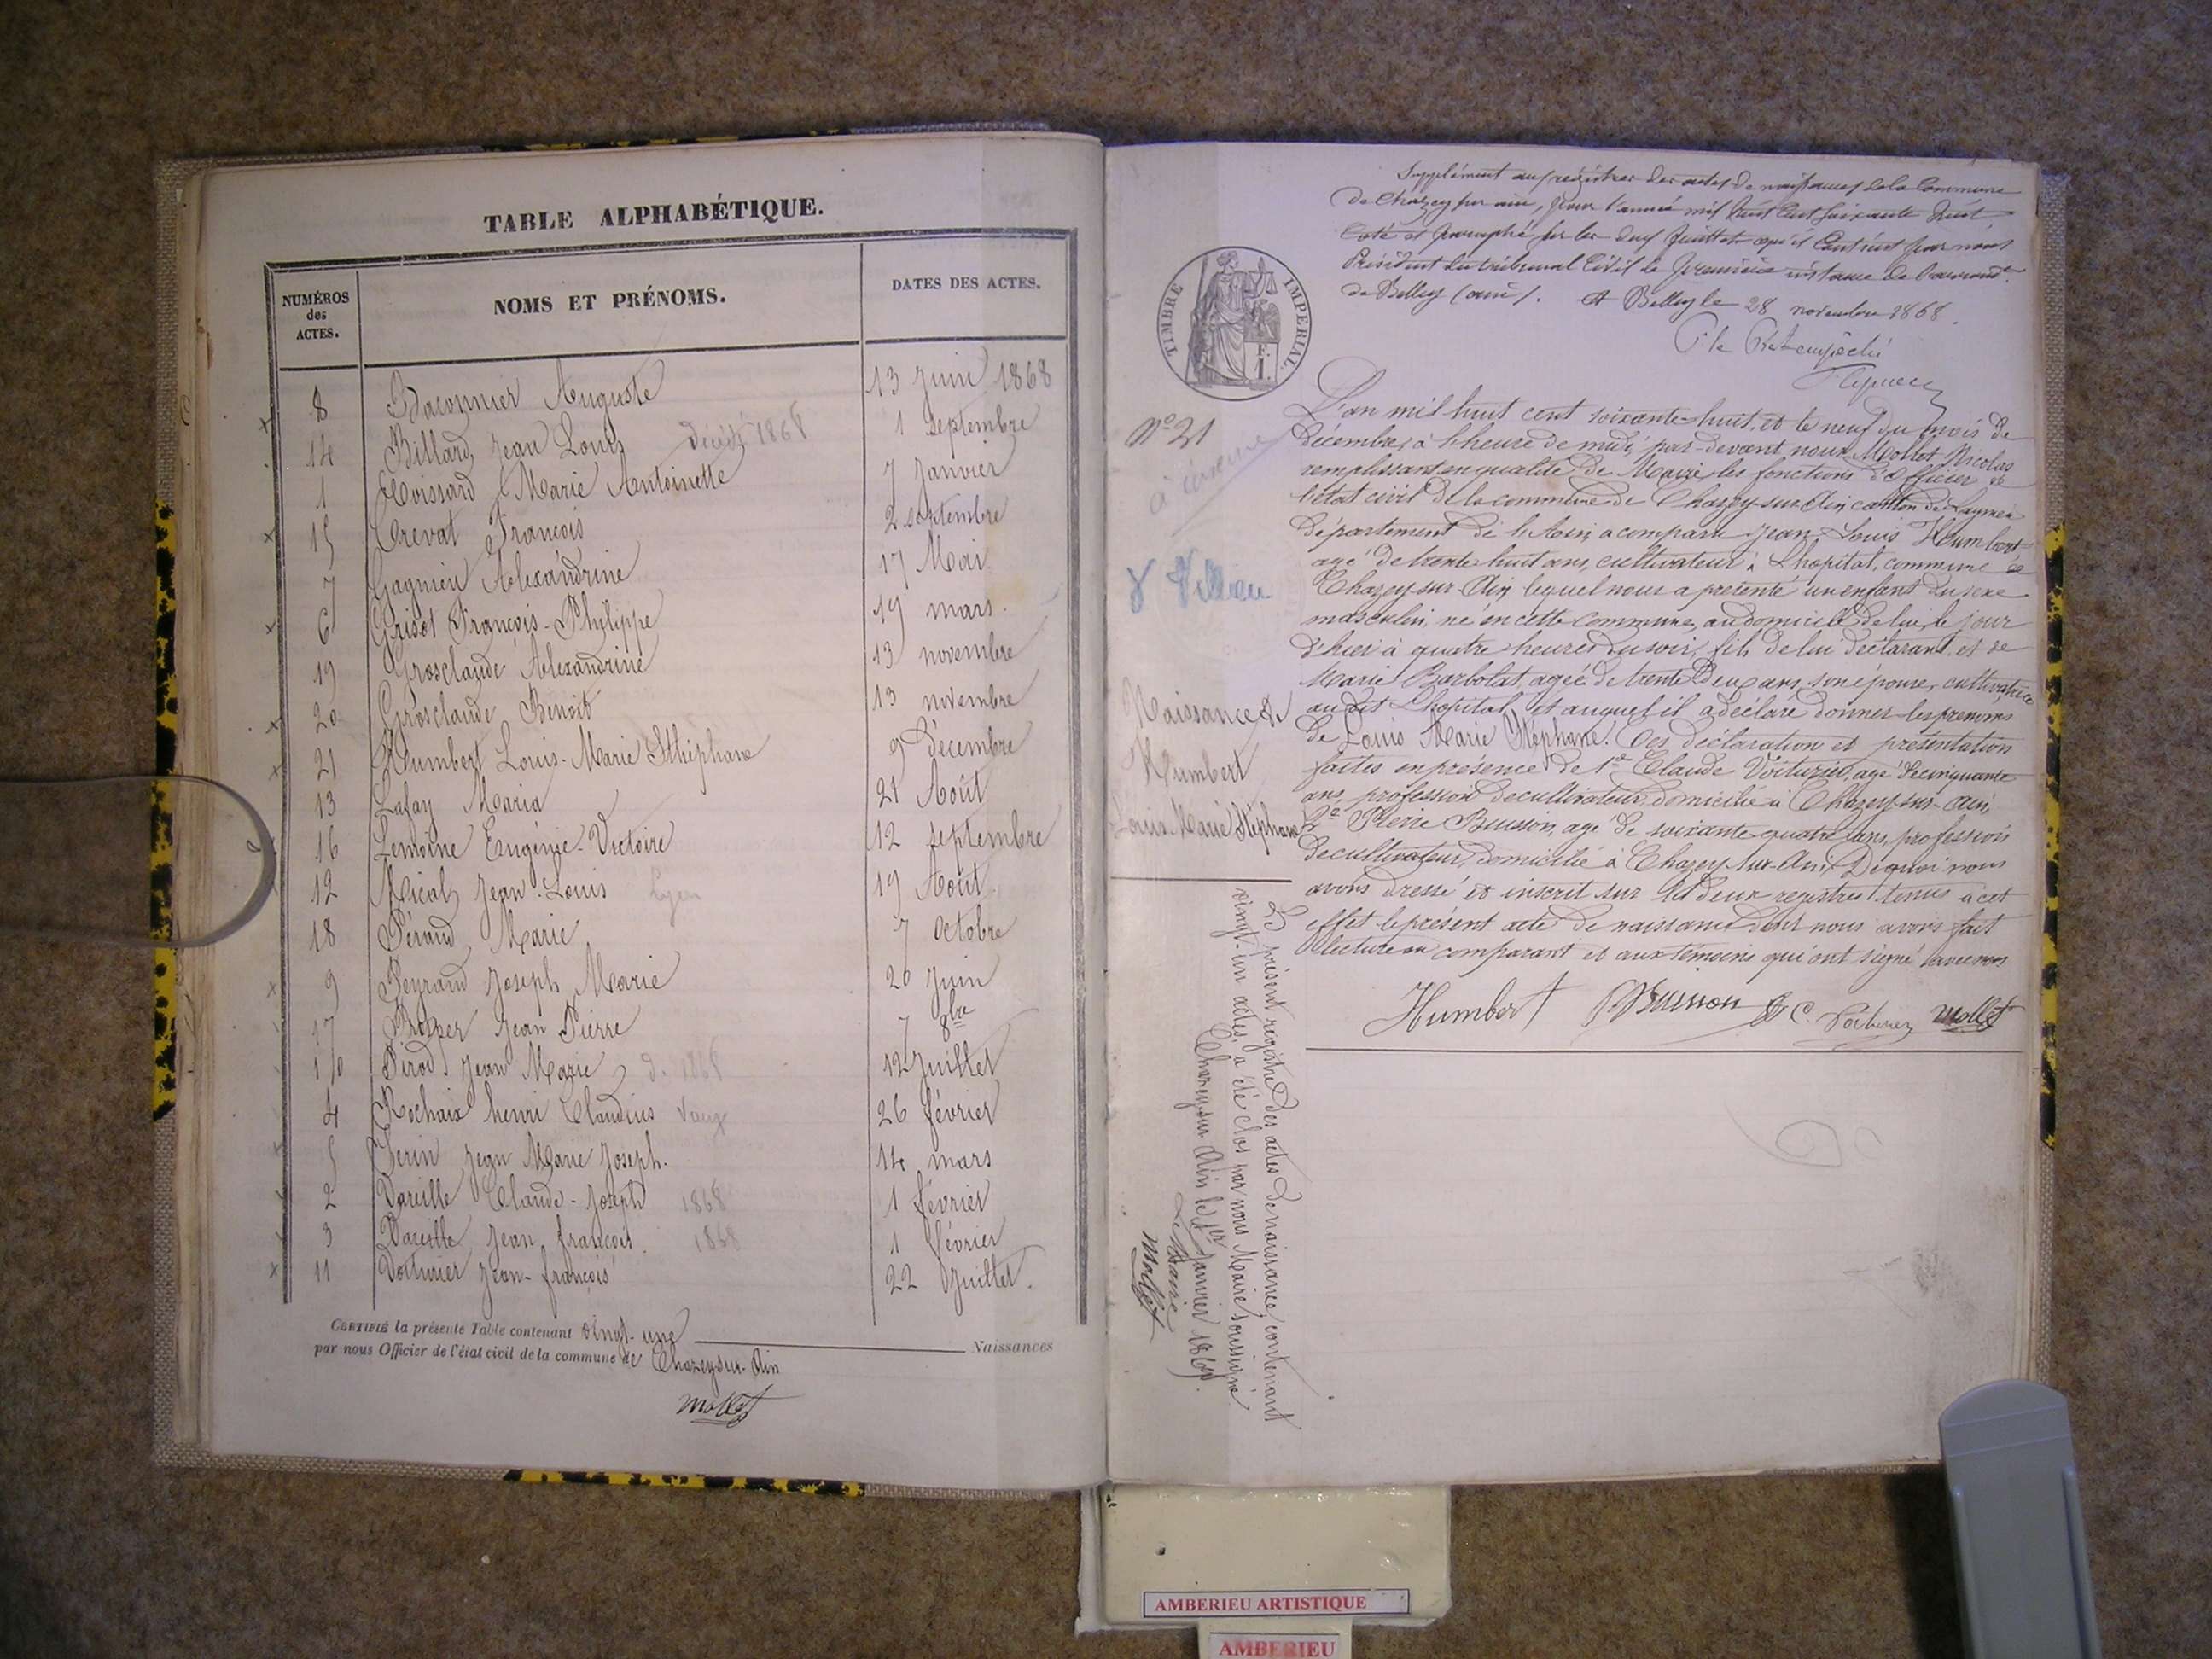 TABLE ALPHABÉTIQUE.
NUMÉROS des ACTES.
NOMS ET PRÉNOMS.
DATES DES ACTES.
8 Baconnier Auguste 13 juin 1868
14 Billard Jean Louis décédé 1868 1 Septembre
1 Coissard Marie Antoinette 7 Janvier
15 Crevat François 2 septembre
7 Gagnieu Alexandrine 17 Mai
6 Grisot François-Philippe 19 mars
19 Grosclaude Alexandrine 13 novembre
20 Grosclaude Benoit 13 novembre
21 Humbert Louis-Marie Sthéphane 9 Décembre
13 Lafay Maria 21 Août
16 Lemoine Eugénie-Victoire 12 septembre
12 Mical Jean-Louis 19 Août
18 Péraud Marie 7 Octobre
9 Peyraud Joseph Marie 20 Juin
17 Jean Pierre 7 8bre
10 Pirod Jean Marie d. 1868 12 Juillet
4 Rochaix henri Claudius 26 février
5 Serin Jean Marie Joseph. 14 mars
2 Vareille Claude-Joseph 1868 1 février
3 Vareille Jean françois. 1868 1 février
11 Voiturier Jean-françois 22 Juillet.
CERTIFIÉ la présente Table contenant vingt-une Naissances
par nous Officier de l'état civil de la commune de Chazey-sur-Ain
Mollet
Supplément aux registres des actes de naissances de la Commune
de Chazey sur ain, pour l'année mil huit cent soixante huit
Coté et paraphé sur les deux feuillets qu'il contient par nous
Président du tribunal Civil de première instance de l'arrond.t
de Belley (ain). A Belley le 28 novembre 1868.
P. le Pt empêché
TIMBRE IMPERIAL
E. I.
N° 21
Naissance de
Humbert
Louis-Marie Stéphane
L'an mil huit cent soixante-huit, et le neuf du mois de
Décembre, à l'heure de midi, par-devant nous Mollet Nicolas
remplissant en qualité de Maire les fonctions d'officier de
l'état civil de la commune de Chazey-sur-Ain canton de Lagnieu
département de l'Ain, a comparu Jean-Louis Humbert
agé de trente huit ans, cultivateur à Lhopital, commune de
Chazey-sur-Ain, lequel nous a présenté un enfant du sexe
masculin, né en cette commune, au domicile de lui, le jour
d'hier à quatre heures du soir, fils de lui déclarant, et de
Marie Barbolat, agée de trente deux ans, son épouse, cultivatrice
audit Lhopital, et auquel il a déclaré donner les prénoms
de Louis Marie Stéphane. Ces déclaration et présentation
faites en présence de 1° Claude Voiturier, agé de cinquante
ans, profession de cultivateur, domicilié à Chazey-sur-Ain,
2° Pierre Buisson, agé de soixante quatre ans, profession
de cultivateur, domicilié à Chazey-sur-Ain. De quoi nous
avons dressé et inscrit sur les deux registres tenus à cet
effet le présent acte de naissance dont nous avons fait
lecture au comparant et aux témoins qui ont signé avec nous
Humbert P Buisson C. Voiturier Mollet
Le présent registre des actes de naissance, contenant
vingt-un actes, a été clos par nous Maire soussigné
Chazey-sur Ain le 1er Janvier 1869.
Le Maire
Mollet
AMBERIEU ARTISTIQUE
AMBERIEU